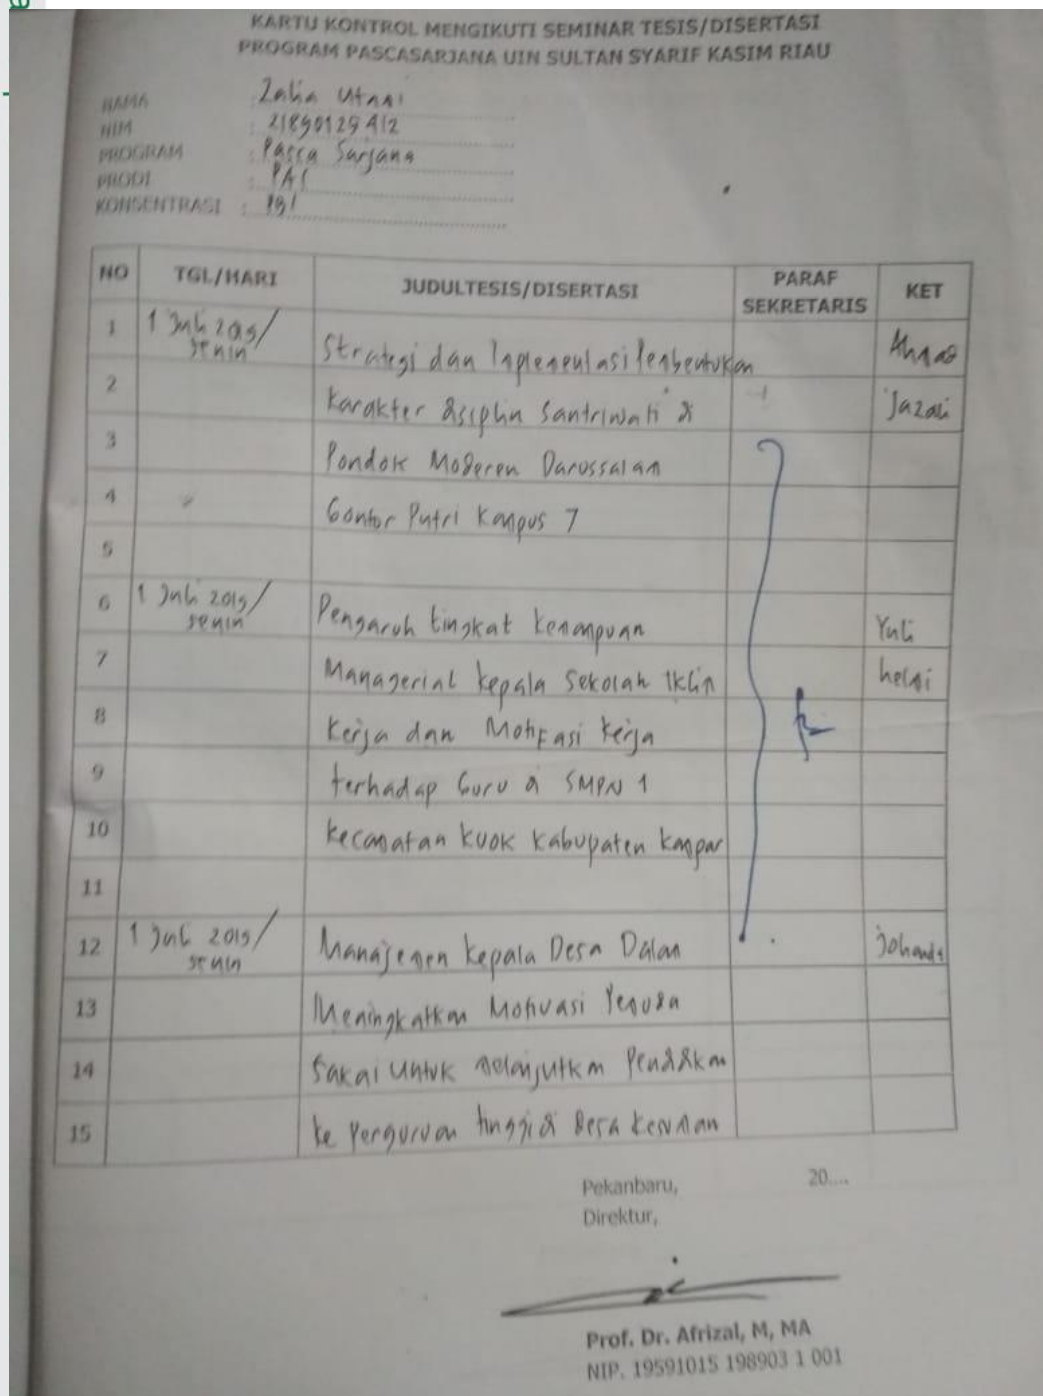 KARTU KONTROL MENGIKUTI SEMINAR TESIS/DISERTASI
PROGRAM PASCASARJANA UIN SULTAN SYARIF KASIM RIAU
NAMA : Zalia Utami
NIM : 21890125412
PROGRAM : Pasca Sarjana
PRODI : PAI
KONSENTRASI :
NO TGL/HARI JUDULTESIS/DISERTASI PARAF SEKRETARIS KET
1 1 Juli 2019/ senin Strategi dan Implementasi Pembentukan Ahmad
2 Karakter disiplin Santriwati di Jazali
3 Pondok Moderen Darussalam
4 Gontor Putri Kampus 7
5
6 1 Juli 2019/ senin Pengaruh tingkat Kemampuan Yuli
7 Managerial kepala sekolah iklim helmi
8 kerja dan Motifasi kerja
9 terhadap Guru di SMPN 1
10 kecamatan kuok kabupaten kampar
11
12 1 Juli 2019/ senin Manajemen kepala Desa Dalam
13 Meningkatkan Motivasi Pemuda
14 Sakai untuk melanjutkan Pendidikan
15 ke Perguruan tinggi di Desa kesuman
Pekanbaru, 20....
Direktur,
Prof. Dr. Afrizal, M, MA
NIP. 19591015 198903 1 001